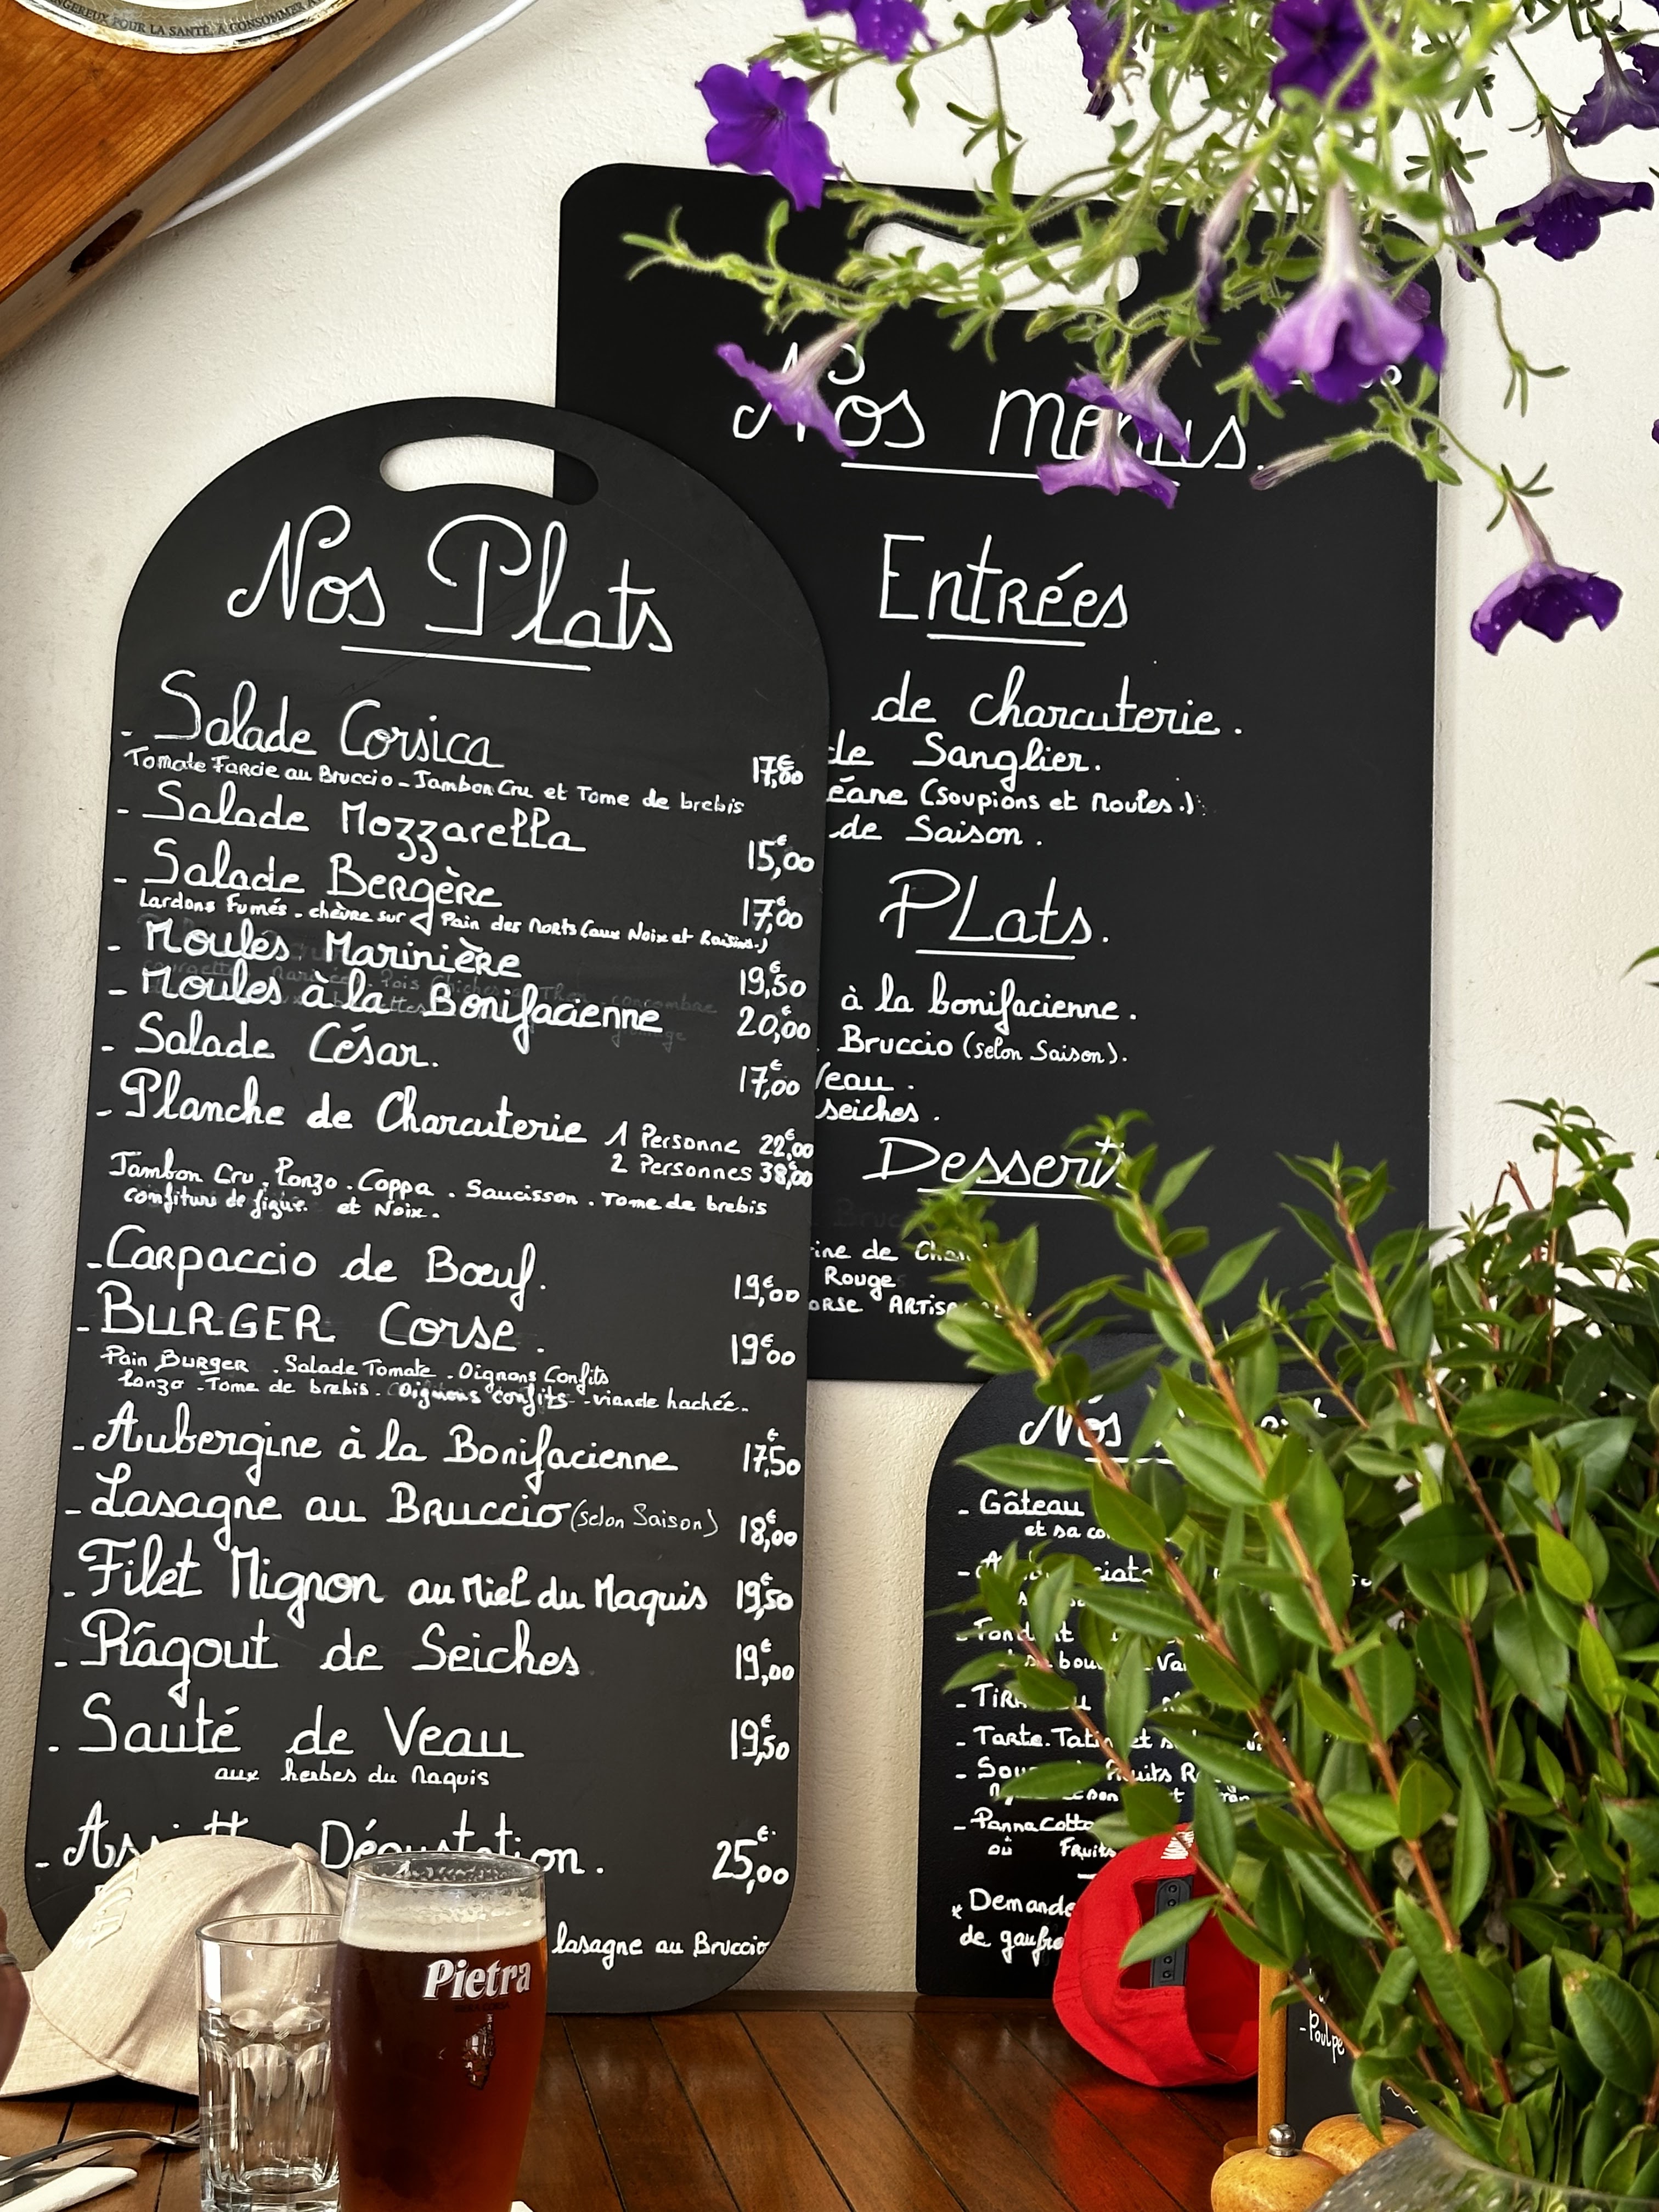 DANGEREUX POUR LA SANTÉ, A CONSOMMER A
Nos Plats
- Salade Corsica 17,€00
Tomate Farcie au Bruccio - Jambon Cru et Tome de brebis
- Salade Mozzarella 15,€00
- Salade Bergère 17,€00
Lardons Fumés - chèvre sur Pain des Morts (aux Noix et Raisins.)
- Moules Marinière 19,€50
- Moules à la Bonifacienne 20,€00
- Salade César. 17,€00
- Planche de Charcuterie 1 Personne 22,€00
2 Personnes 38,€00
Jambon Cru. Lonzo. Coppa. Saucisson. Tome de brebis
confiture de figue. et Noix.
- Carpaccio de Bœuf. 19,€00
- BURGER Corse. 19€00
Pain BURGER . Salade Tomate . Oignons Confits
Lonzo - Tome de brebis. Oignons confits - viande hachée.
- Aubergine à la Bonifacienne 17,€50
- Lasagne au Bruccio (selon Saison) 18,€00
- Filet Mignon au Miel du Maquis 19,€50
- Râgout de Seiches 19,€00
- Sauté de Veau 19,€50
aux herbes du Maquis
- Dégustation. 25,€00
lasagne au Bruccio
Nos menus.
Entrées
de charcuterie.
de Sanglier.
éane (Soupions et Moules.)
de Saison.
PLats.
à la bonifacienne.
Bruccio (selon Saison).
Veau.
seiches.
Desserts
ine de
Rouge
ORSE
Nos
- Gâteau
et sa
- Fondant
- Tarte Tatin et
- Fruits
- Panna cotta
où Fruits
* Demande
de gaufre
- Poulpe
Pietra